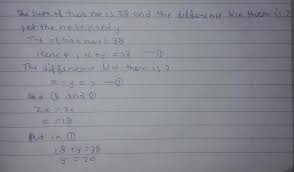 The sum of two no is 38 and the difference b/w them is 2
Let the no. be x and y
The of two no is 38
Hence, x + y = 38 —①
The difference b/w them is 2
x - y = 2 —②
Add ① and ②
2x =
x = 18
Put in ①
18 + y = 38
y = 20